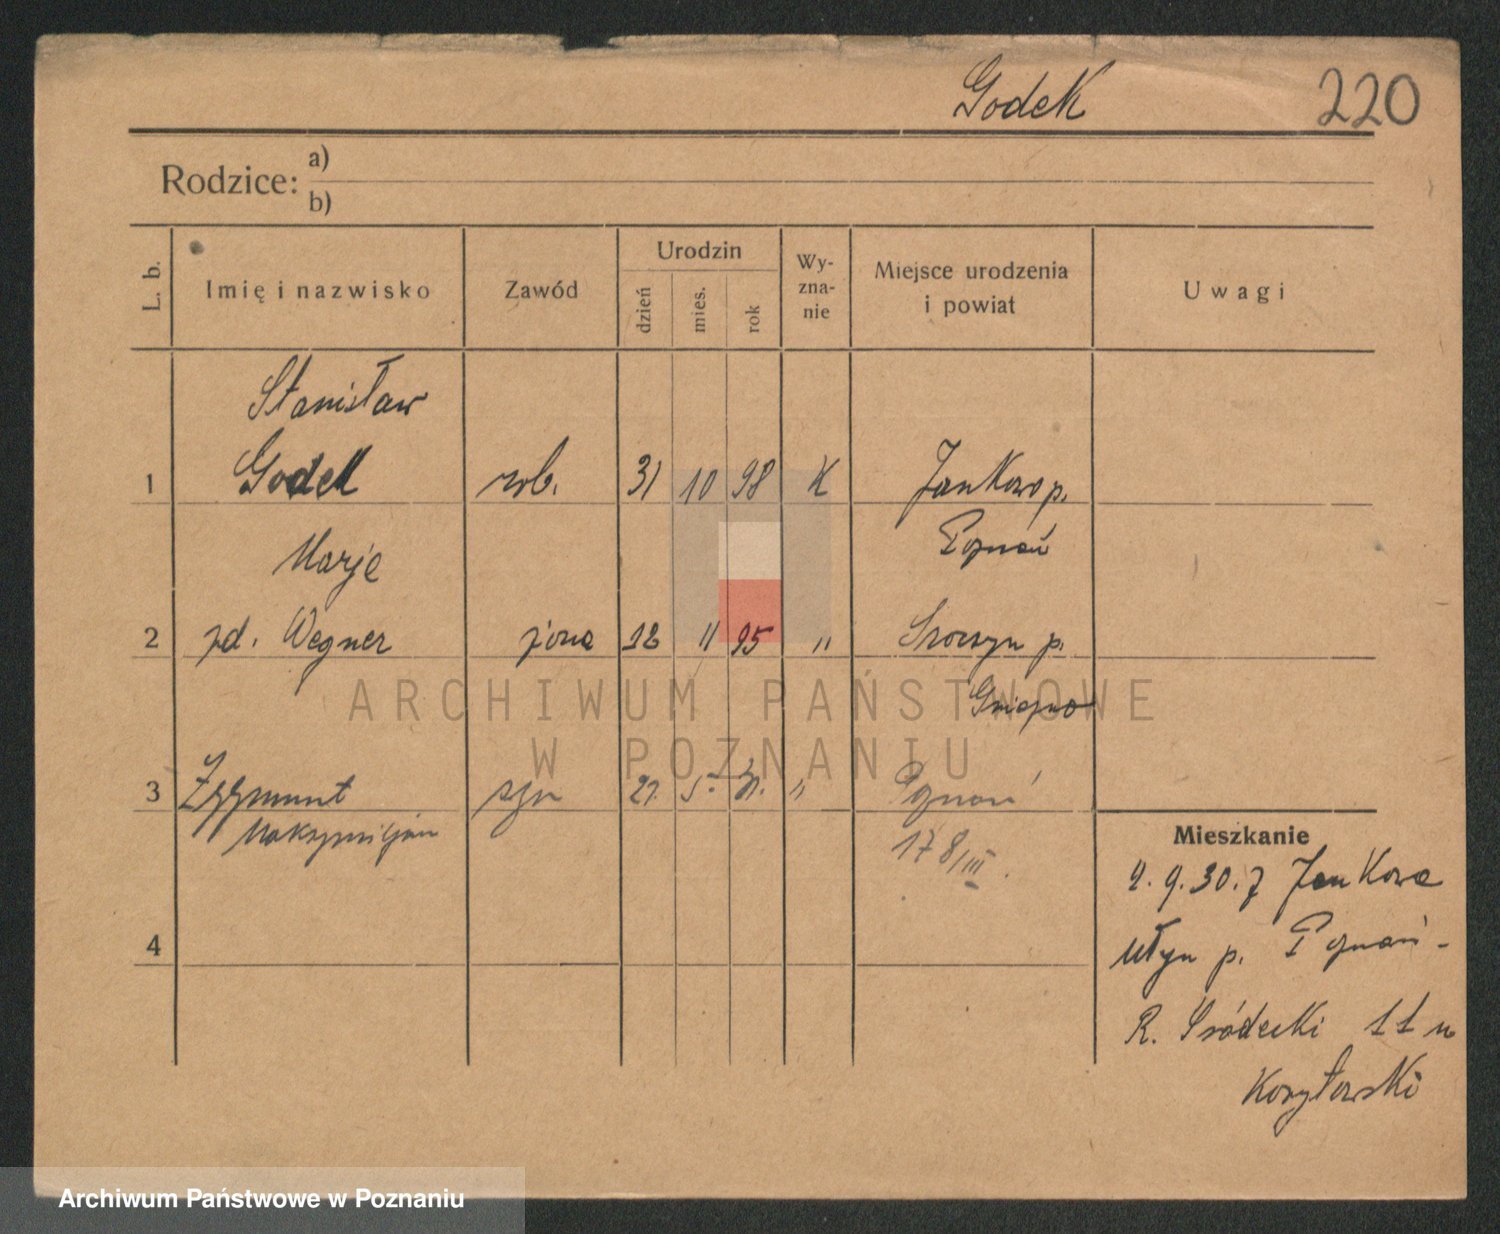 Godek 220
Rodzice: a)
b)
L. b. Imię i nazwisko Zawód Urodzin dzień mies. rok Wy-zna-nie Miejsce urodzenia i powiat Uwagi
Stanisław
1 Godek rob. 31 10 98 K Jankowo p.
Poznań
Marje
2 zd. Wegner żona 12 11 95 " p.
Gniezno
3 Zygmunt syn 21. 5. 31. " Poznań
Maksymiljan 178/III.
Mieszkanie
2.9.30. z Jankowa
Młyn p. Poznań -
4
R. Śródecki 11 u
Korytowski
ARCHIWUM PAŃSTWOWE
W POZNANIU
Archiwum Państwowe w Poznaniu